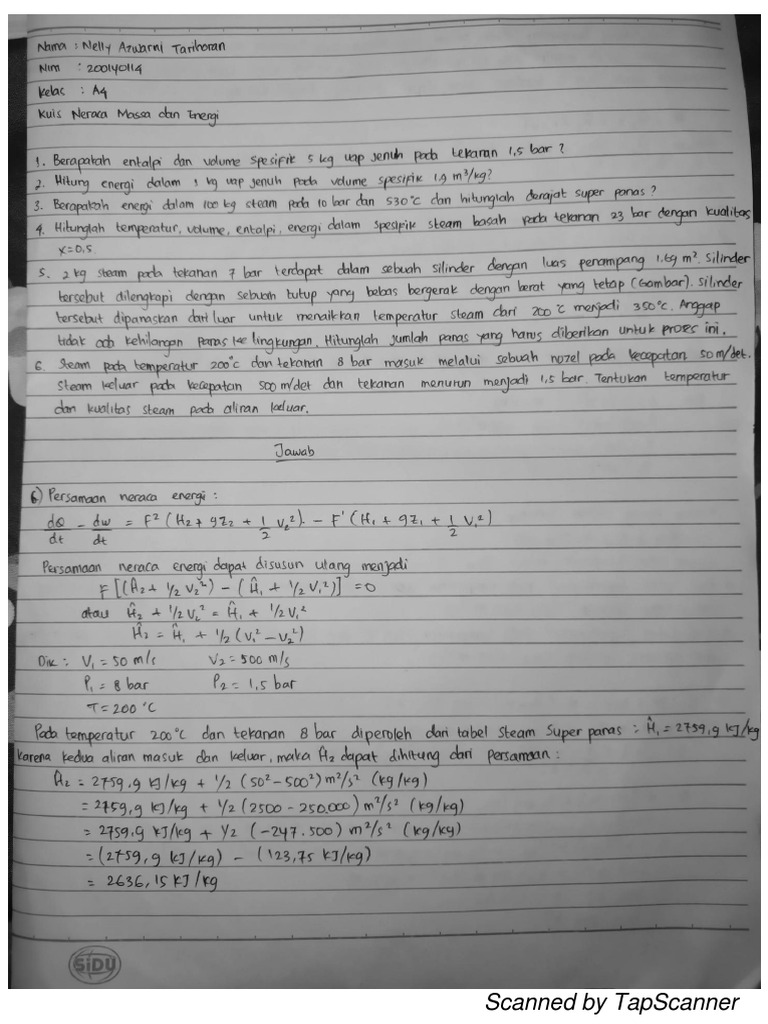 Nama : Nelly Azwarni Tarihoran
Nim : 200140114
Kelas : A4
Kuis Neraca Massa dan Energi
1. Berapakah entalpi dan volume spesifik 5 kg uap jenuh pada tekanan 1,5 bar ?
2. Hitung energi dalam 1 kg uap jenuh pada volume spesifik 1.9 m³/kg?
3. Berapakah energi dalam 100 kg steam pada 10 bar dan 530°C dan hitunglah derajat super panas ?
4. Hitunglah temperatur, volume, entalpi, energi dalam spesipik steam basah pada tekanan 23 bar dengan kualitas
x=0,5.
5. 2 kg steam pada tekanan 7 bar terdapat dalam sebuah silinder dengan luas penampang 1.69 m². Silinder
tersebut dilengkapi dengan sebuah tutup yang bebas bergerak dengan berat yang tetap (Gambar). Silinder
tersebut dipanaskan dari luar untuk menaikkan temperatur steam dari 200°C menjadi 350°C. Anggap
tidak ada kehilangan panas ke lingkungan. Hitunglah jumlah panas yang harus diberikan untuk proses ini.
6. Steam pada temperatur 200°C dan tekanan 8 bar masuk melalui sebuah nozel pada kecepatan 50 m/det.
Steam keluar pada kecepatan 500 m/det dan tekanan menurun menjadi 1,5 bar. Tentukan temperatur
dan kualitas steam pada aliran keluar.
Jawab
6) Persamaan neraca energi :
dQ/dt - dw/dt = F² (H₂ + gZ₂ + 1/2 V₂²). - F' (H₁ + gZ₁ + 1/2 V₁²)
Persamaan neraca energi dapat disusun ulang menjadi
F [(Ĥ₂ + 1/2 V₂²) - (Ĥ₁ + 1/2 V₁²)] = 0
atau Ĥ₂ + 1/2 V₂² = Ĥ₁ + 1/2 V₁²
Ĥ₂ = Ĥ₁ + 1/2 (V₁² - V₂²)
Dik : V₁ = 50 m/s V₂ = 500 m/s
P₁ = 8 bar P₂ = 1,5 bar
T = 200 °C
Pada temperatur 200°C dan tekanan 8 bar diperoleh dari tabel Steam Super panas : Ĥ₁ = 2759,9 kJ/kg
karena kedua aliran masuk dan keluar, maka Ĥ₂ dapat dihitung dari persamaan :
Ĥ₂ = 2759.9 kJ/kg + 1/2 (50² - 500²) m²/s² (kg/kg)
= 2759,9 kJ/kg + 1/2 (2500 - 250.000) m²/s² (kg/kg)
= 2759.9 kJ/kg + 1/2 (-247.500) m²/s² (kg/kg)
= (2759,9 kJ/kg) - (123,75 kJ/kg)
= 2636,15 kJ/kg
SiDU
Scanned by TapScanner